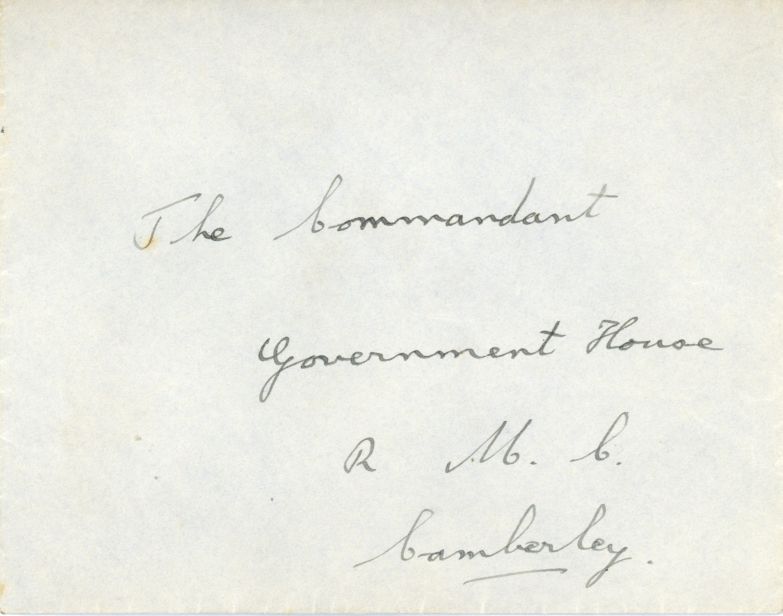 The Commandant
Government House
R M. C.
Camberley.